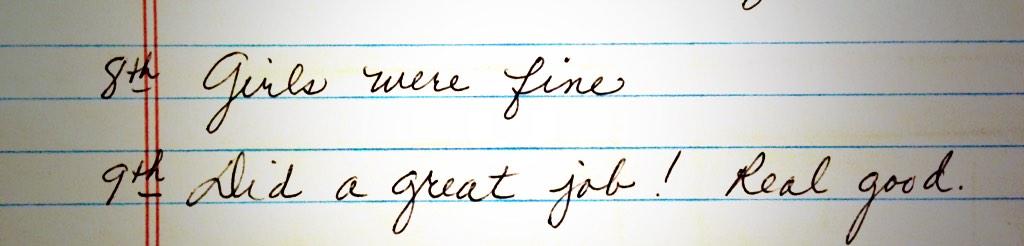 8th Girls were fine
9th Did a great job! Real good.